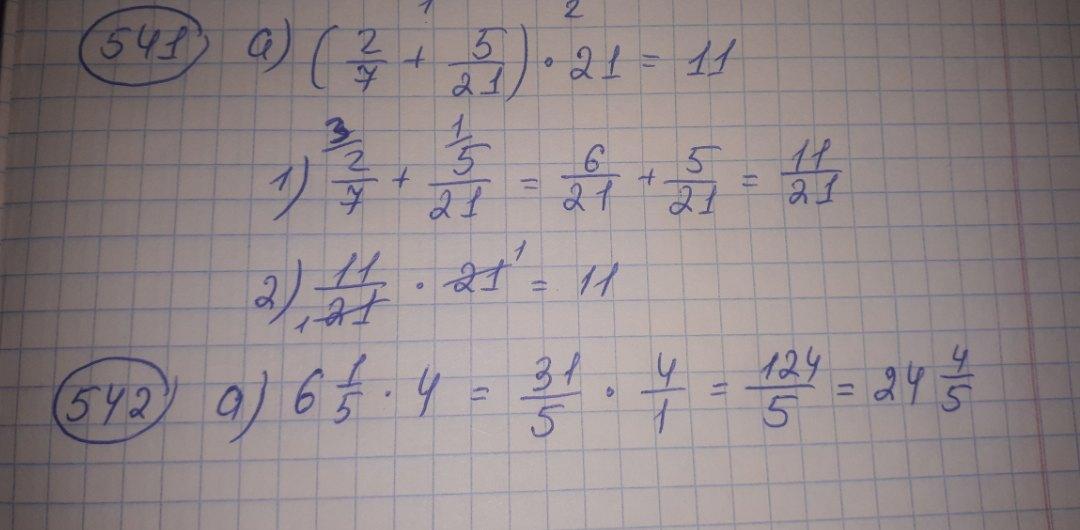 1 2
541 a) (2/7 + 5/21) · 21 = 11
1) 3/ 2/7 + 1/ 5/21 = 6/21 + 5/21 = 11/21
2) 11/21 1 · 21 1 = 11
542 a) 6 1/5 · 4 = 31/5 · 4/1 = 124/5 = 24 4/5